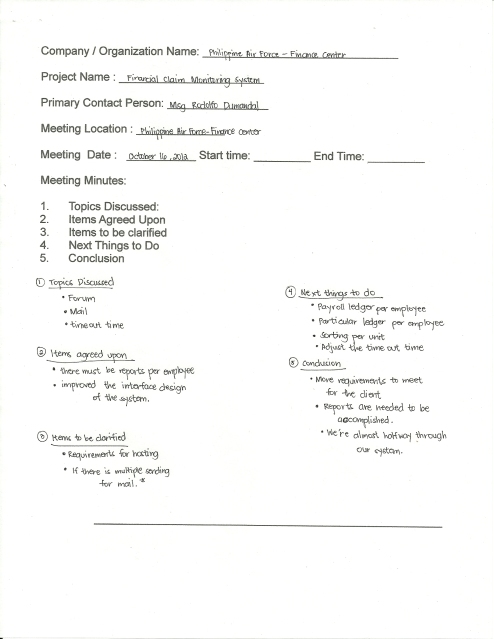 Company / Organization Name: Philippine Air Force - Finance Center
Project Name : Financial Claim Monitoring System
Primary Contact Person: Msg Rodolfo Dumandal
Meeting Location : Philippine Air Force-Finance center
Meeting Date : October 16, 2012 Start time: End Time:
Meeting Minutes:
1. Topics Discussed:
2. Items Agreed Upon
3. Items to be clarified
4. Next Things to Do
5. Conclusion
① Topics Discussed
• Forum
• Mail
• timeout time
② Items agreed upon
• there must be reports per employee
• improved the interface design
of the system.
③ Items to be clarified
• Requirements for hosting
• If there is multiple sending
for mail.*
④ Next things to do
• Payroll ledger per employee
• Particular ledger per employee
• Sorting per unit
• Adjust the time out time
⑤ Conclusion
• More requirements to meet
for the client
• Reports are needed to be
accomplished.
• We're almost halfway through
our system.